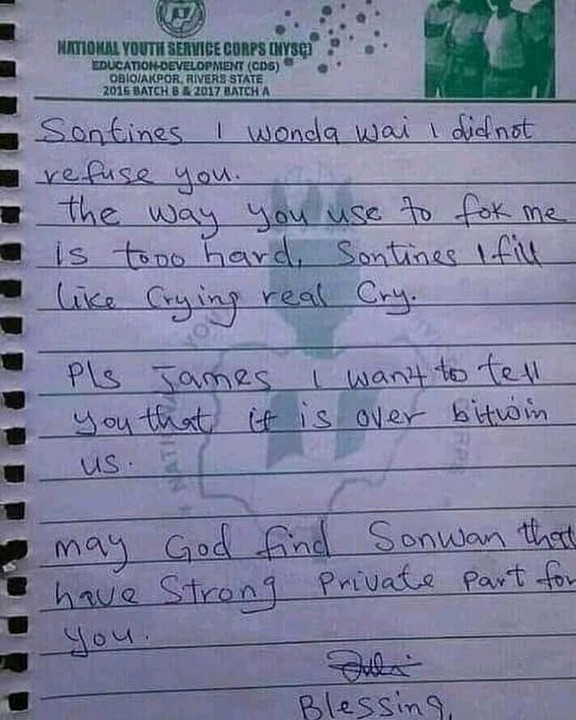 NATIONAL YOUTH SERVICE CORPS (NYSC)
EDUCATION-DEVELOPMENT (CDS)
OBIO/AKPOR, RIVERS STATE
2016 BATCH B & 2017 BATCH A
Sontines I wonda wai I did not
refuse you.
the way you use to fok me
is tooo hard, Sontines I fill
like Crying real Cry.
Pls James I want to tell
you that it is over bitwin
us.
may God find Sonwan that
have Strong Private Part for
you.
Blessing,